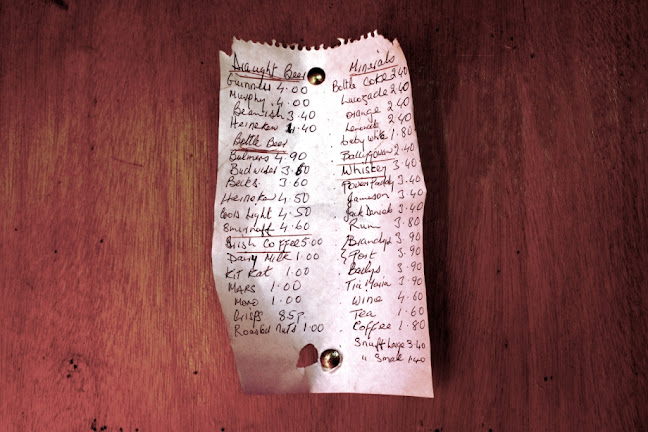 Draught Beer
Guinness 4.00
Murphy 4.00
Beamish 3.40
Heineken 4.40
Bottle Beer
Bulmers 4.90
Budwiser 3.60
Becks 3.60
Heineken 4.50
Coors Light 4.50
Smirnoff 4.60
Irish Coffee 5.00
Dairy Milk 1.00
Kit Kat 1.00
MARS 1.00
1.00
Crisps 85p
Roasted Nuts 1.00
Minerals
Bottle Coke 2.40
Lucozade 2.40
Orange 2.40
Lemonade 2.40
baby white 1.80
Ballygowan 2.40
Whiskey 3.40
Power Paddy 3.40
Jameson 3.40
Jack Daniels 3.40
Rum 3.80
Brandys 3.90
Port 3.90
Baileys 3.90
Tia Maria 3.90
Wine 4.60
Tea 1.60
Coffee 1.80
Snuff Large 3.40
" Small 1.40